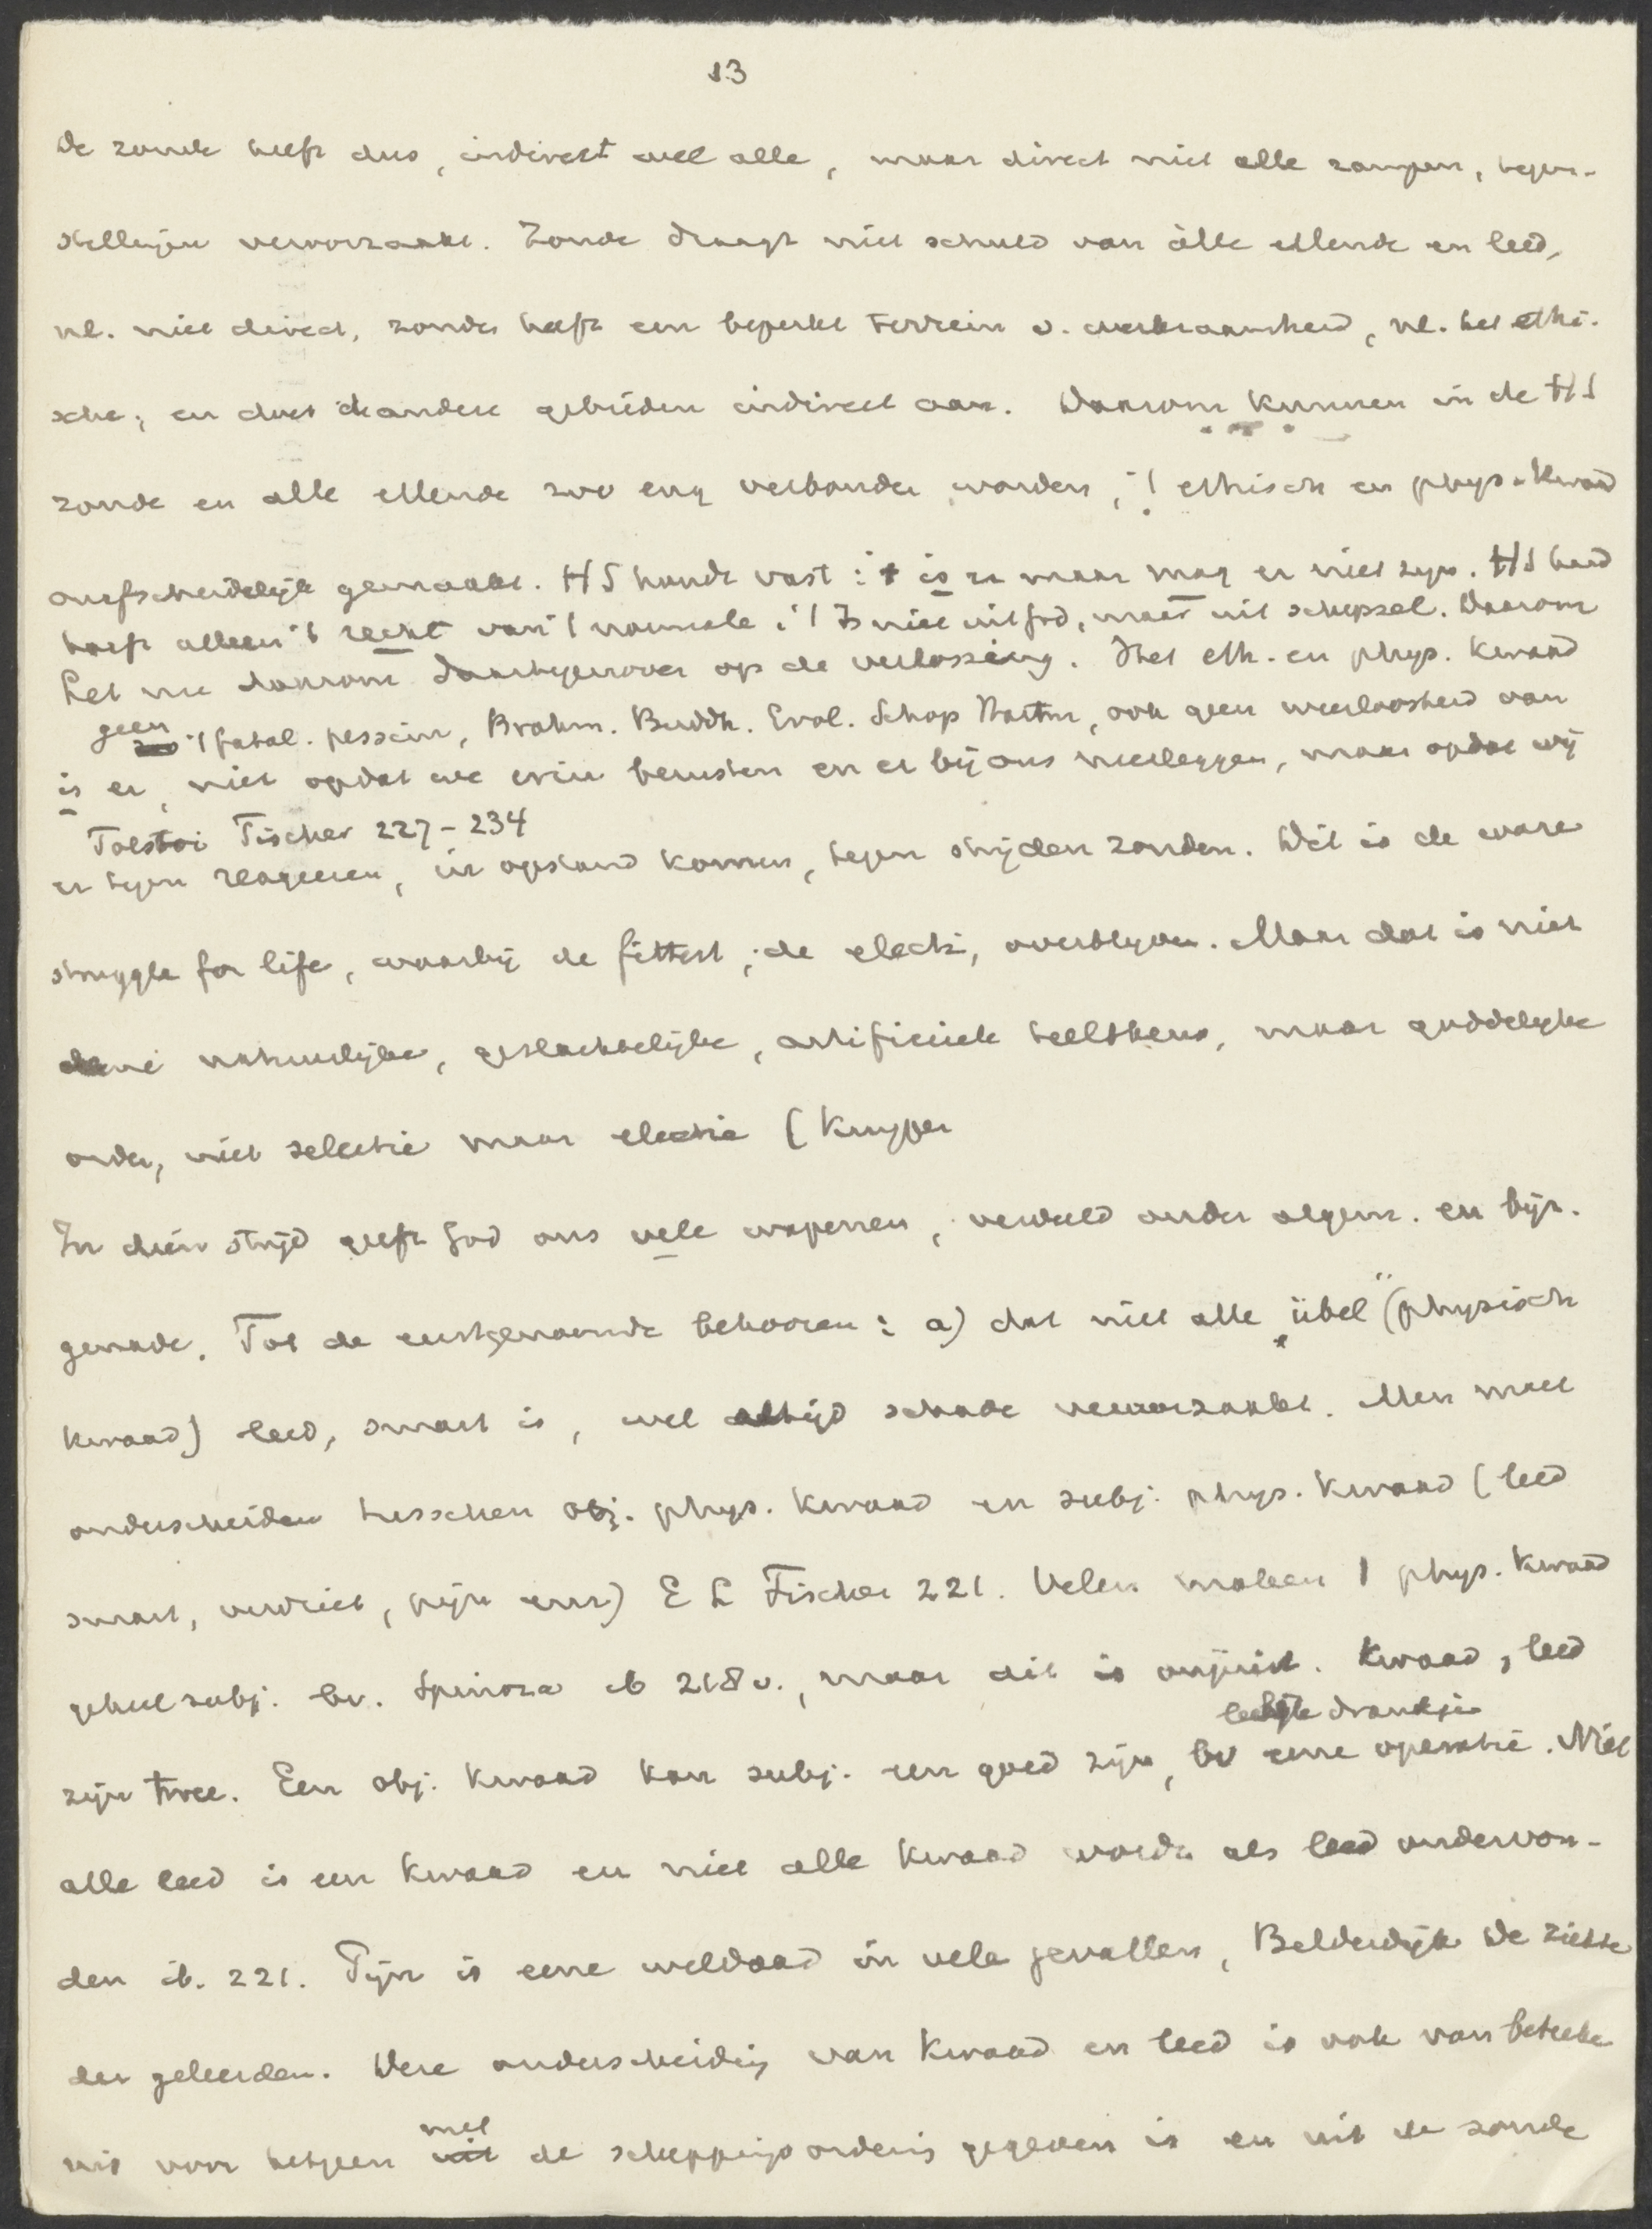 13
De zonde heeft dus, indirekt wel alle, maar direct niet alle rampen, tegen-
stellingen veroorzaakt. Zonde draagt niet schuld van àlle ellende en leed,
nl. niet direct, zonde heeft een beperkt terrein v. werkzaamheid, nl. het ethi-
sche; en doet de andere gebieden indirect aan. Daarom kunnen in de HS
zonde en alle ellende zoo eng verbonden worden, 't ethisch en phys. kwaad
onafscheidelijk gemaakt. HS houdt vast: 't is er maar mag er niet zijn. HS
heeft alleen 't recht van 't normale; 't is niet uit God, maar uit schepsel. Daarom
Let nu daarom daartegenover op de verlossing. Het eth. en phys. kwaad
geen 't fatal. pessim, Brahm. Buddh. Evol. Schop Hartm, ook geen weerloosheid van
is er, niet opdat we erin berusten en er bij ons neerleggen, maar opdat wij
Tolstoi Fischer 227-234
er tegen reageeren, in opstand komen, tegen strijden zouden. Dit is de ware
struggle for life, waarbij de fittest, de electi, overblijven. Maar dat is niet
eene natuurlijke, geslachtelijke, artificieele teeltkeus, maar goddelijke
orde, niet selectie maar electie (Kuyper
In dien strijd geeft God ons vele wapenen, verdeeld onder algem. en bijz.
genade. Tot de eerstgenoemde behooren: a) dat niet alle „übel" (physisch
kwaad) leed, smart is, wel altijd schade veroorzaakt. Men moet
onderscheiden tusschen obj. phys. kwaad en subj. phys. kwaad (leed
smart, verdriet, pijn enz) E L Fischer 221. Velen maken 't phys. kwaad
geheel subj. bv. Spinoza ib 218 v., maar dit is onjuist. Kwaad, leed
leelijke drankje
zijn twee. Een obj. kwaad kan subj. een goed zijn, bv eene operatie. Niet
alle leed is een kwaad en niet alle kwaad wordt als leed ondervon-
den ib. 221. Pijn is eene weldaad in vele gevallen, Bilderdijk De ziekte
der geleerden. Deze onderscheiding van kwaad en leed is ook van beteeke
nis voor hetgeen met de scheppingsordening gegeven is en uit de zonde